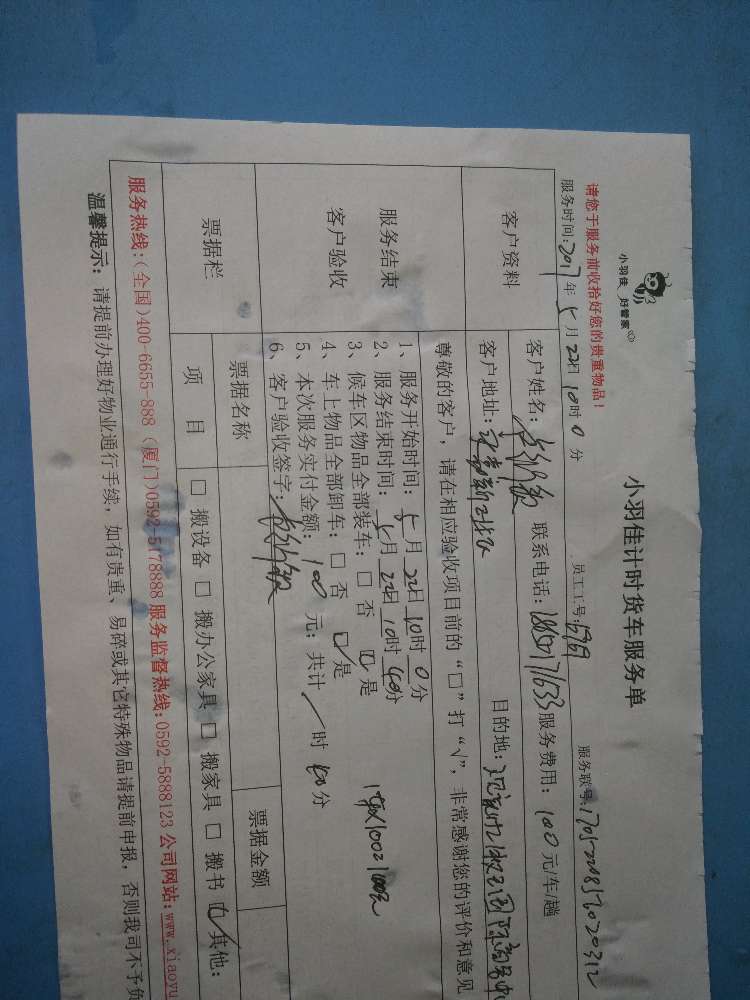 小羽佳 好管家
小羽佳计时货车服务单
请您于服务前收拾好您的贵重物品!
服务时间:2017年5月22日10时0分 员工工号: 服务联号:
客户资料
客户姓名: 联系电话: 服务费用:100元/车/趟
客户地址: 目的地:
服务结束
客户验收
尊敬的客户,请在相应验收项目前的“□”打“√”,非常感谢您的评价和意见
1、服务开始时间:5月22日10时0分
2、服务结束时间:5月22日10时40分
3、候车区物品全部装车:□ 否 ☑ 是
4、车上物品全部卸车:□ 否 ☑ 是
5、本次服务实付金额:100元;共计/时40分
6、客户验收签字:
票据栏
票据名称 票据金额
项 目 □ 搬设备 □ 搬办公家具 □ 搬家具 □ 搬书 ☑ 其他:
服务热线:(全国)400-6655-888 (厦门)0592-5178888 服务监督热线:0592-5888123 公司网站:www.xiaoyu
温馨提示:请提前办理好物业通行手续,如有贵重、易碎或其它特殊物品请提前申报,否则我司不予负